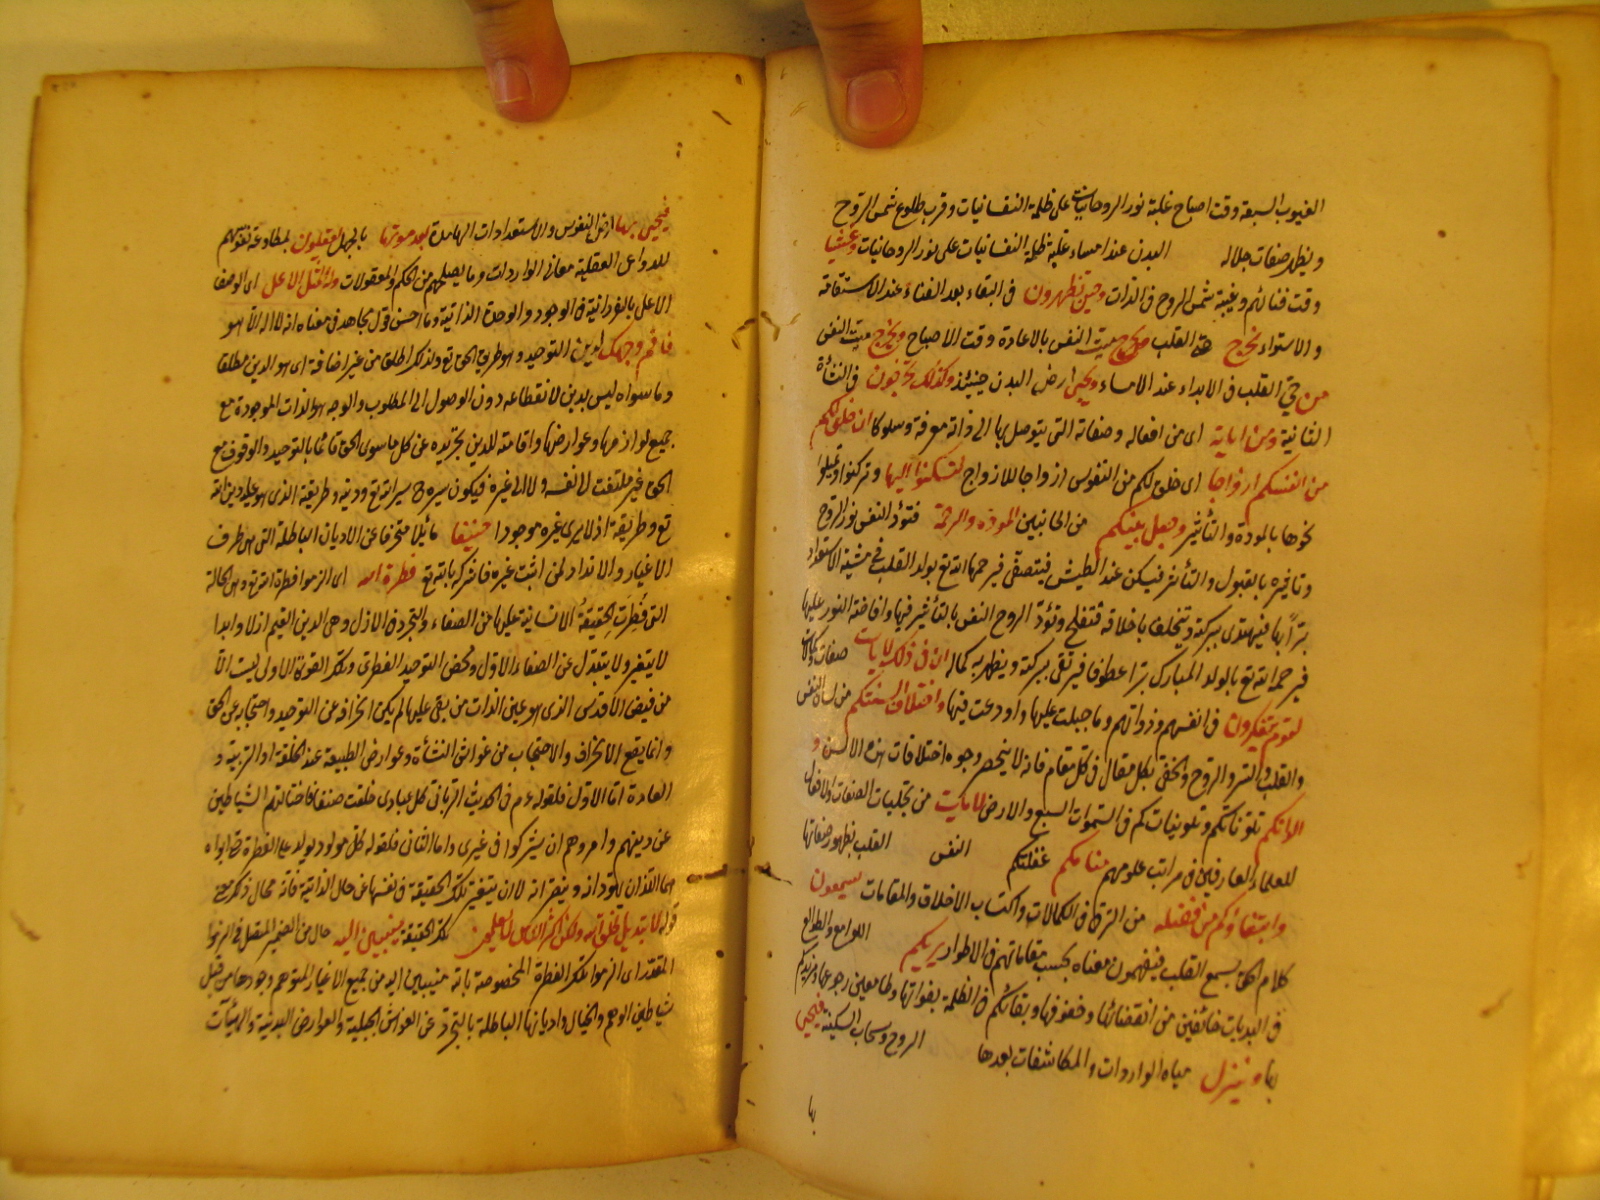 الغيوب السبعة وقت اصباح غلبة نور الروحانيات على ظلمة النفسانيات وقرب طلوع شمس الروح
ويظهر صفات جلاله البدن عند امساء غلبة ظلمة النفسانيات على نور الروحانيات وعشيا
وقت فنائهم وغيبة شمس الروح في الذات وحين تظهرون في البقاء بعد الفناء عند الاستقامة
والاستواء يخرج القلب من ميت النفس بالاعادة وقت الاصباح ويخرج ميت النفس
من حي القلب في الابداء عند الامساء ويحيى ارض البدن حينئذ وكذلك تخرجون في النشأة
الثانية ومن اياته اى من افعاله وصفاته التى يتوصل بها الى ذاته معرفة وسلوكا ان خلق لكم
من انفسكم ازواجا اى خلق لكم من النفوس ازواجا للارواح لتسكنوا اليها وتركنوا وتميلوا
نحوها بالمودة والتأثير وجعل بينكم من الجانبين المودة والرحمة فتود النفس نور الروح
وتأثيره بالقبول والتأثر فيسكن عند الطيش فيتصفى فيرحمها الله تع بولد القلب في مشيمة الاستعداد
برّا بها فيهتدى ببركته ويتخلق باخلاقه فتفلح وتود الروح النفس بالتأثير فيها وافاضة النور عليها
فيرحمه الله تع بالولد المبارك برّا عطوفا فيرتقى ببركته ويظهر به كماله ان في ذلك لايات صفات وكمالات
لقوم يتفكرون في انفسهم وذواتهم وما جبلت عليها واودعت فيها واختلاف السنتكم من لسان النفس
والقلب والسر والروح والخفى بكل مقال في كل مقام فانه لا ينحصر وجوه اختلافات هذه الالسن و
الوانكم تلوناتكم وتلوينات كم في السموات السبع والارض لايات من تجليات الصفات والافعال
للعلماء العارفين في مراتب علومهم منامكم غفلتكم النفس القلب بظهور صفاتها
وابتغاؤكم من فضله من الترقى في الكمالات واكتساب الاخلاق والمقامات يسمعون
كلام الحق بسمع القلب فيفهمون معناه بحسب مقاماتهم في الاطوار يريكم اللوامع والطوالع
في البدايات خائفين من انقضائها وخفوقها وبقائكم في الظلمة بفواتها وطامعين رجوعها ومزيدكم
بها وينزل مياه الواردات والمكاشفات بعدها الروح وسحاب السكينة فيحيى
بها
فيحيى بها ارض النفوس والاستعدادات الهامدة بعد موتها بالجهل يعقلون بمطاوعة نفوسهم
للدواعى العقلية معانى الواردات وما يصلهم من الحكم والمعقولات وله المثل الاعلى اى الوصف
الاعلى بالفردانية في الوجود والوحدة الذاتية وما احسن قول مجاهد في معناه انه لا اله الا هو
فاقم وجهك لدين التوحيد وهو طريق الحق تع ولذلك اطلق من غير اضافة اى هو الدين مطلقا
وما سواه ليس بدين لانقطاعه دون الوصول الى المطلوب والوجه هو الذات الموجودة مع
جميع لوازمها وعوارضها واقامته للدين تجريده عن كل ما سوى الحق قائما بالتوحيد والوقوف مع
الحق غير ملتفت الى نفسه ولا الى غيره فيكون سيره ح سير الله تع ودينه وطريقته الذى هو عليه دين الله
تع وطريقة اذ لا يرى غيره موجودا حنيفا مائلا منحرفا عن الاديان الباطلة التى هى طرق
الاغيار والانداد لمن اثبت غيره فاشرك بالله تع فطرة الله اى الزموا فطرة الله تع وهى الحالة
التى فطرت الحقيقة الانسانية عليها من الصفاء والتجرد في الازل وهى الدين القيم ازلا وابدا
لا يتغير ولا يتبدل عن الصفاء الاول ومحض التوحيد الفطرى وتلك الفطرة الاولى ليست الا
من فيض الاقدس الذى هو عين الذات من بقى عليها لم يكن انحرافه عن التوحيد واحتجابه عن الحق
وانما يقع الانحراف والاحتجاب من غواشى النشأة وعوارض الطبيعة عند الخلقة او التربية و
العادة اما الاول فلقوله ءم في الحديث الربانى كل عبادى خلقت حنفاء فاحتالتهم الشياطين
عن دينهم وامروهم ان يشركوا في غيرى واما الثانى فلقوله كل مولود يولد على الفطرة حتى ابواه
هما اللذان يهودانه وينصرانه لا ان يتغير تلك الحقيقة في نفسها عن حال الذاتية فانه محال ذلك معنى
قوله لا تبديل لخلق الله ولكن اكثر الناس لا يعلمون تلك الحقيقة منيبين اليه حال من الضمير المتصل في الزموا
المقدر اى الزموا تلك الفطرة المخصوصة بالله منيبين اليه من جميع الاغيار المتوهم وجودها من قبل
شياطين الوهم والخيال واديانها الباطلة بالتجرد عن الغواشى الجبلية والعوارض البدنية والهيئات